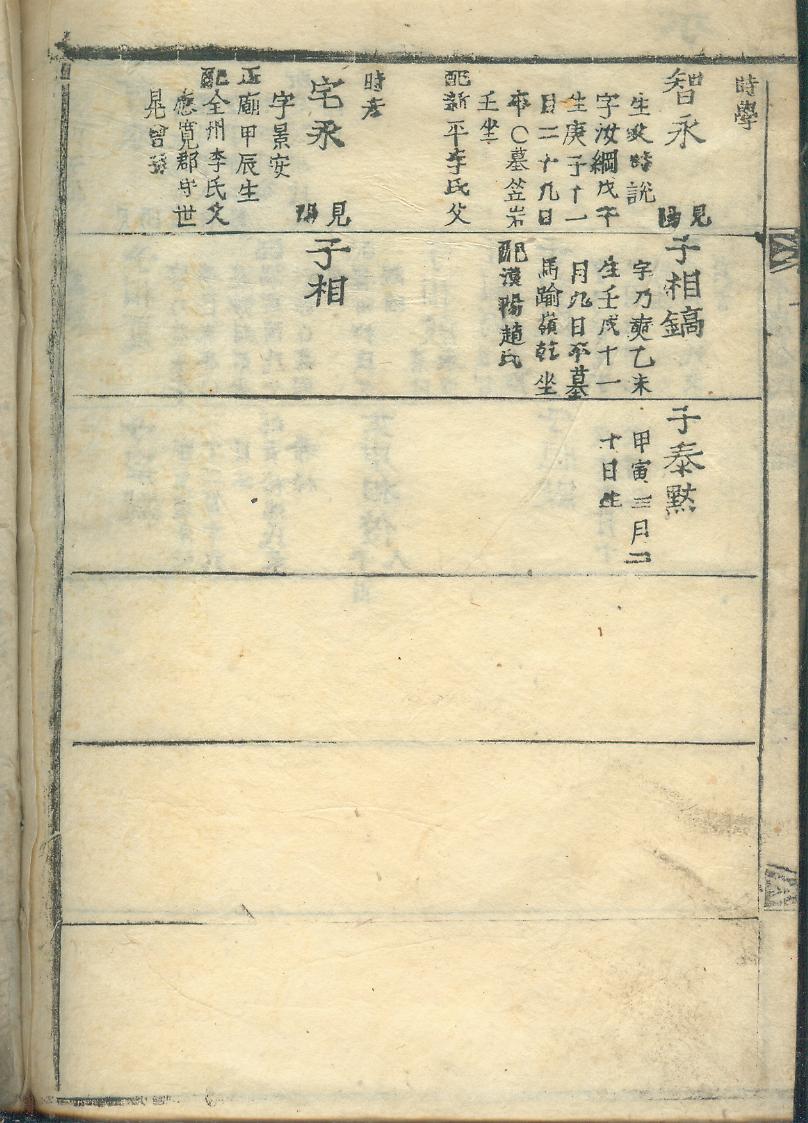 時學
智永
見
生父時說
字汝綱戊午
生庚子十一
月二十九日
卒〇墓笠岩
壬坐
配新平李氏父
時彦
宅永
見
字景安
正廟甲辰生
配全州李氏父
應寬郡守世
晁曾孫
子相鎬
字乃奭乙未
生壬戌十一
月九日卒墓
馬踰嶺乾坐
配漢陽趙氏
子相
子泰默
甲寅三月二
十日生